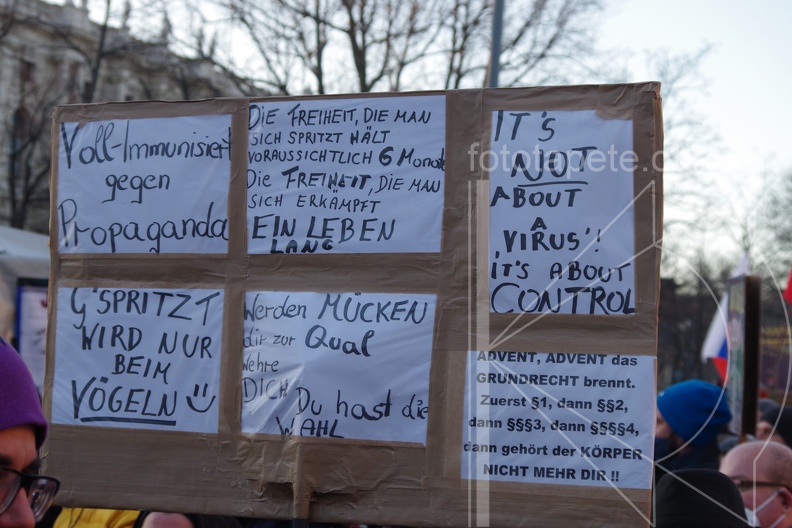 Voll-Immunisiert
gegen
Propaganda
DIE FREIHEIT, DIE MAN
SICH SPRITZT HÄLT
VORAUSSICHTLICH 6 Monate
Die FREIHEIT, DIE MAN
SICH ERKÄMPFT
EIN LEBEN
LANG
IT'S
NOT
ABOUT
A
'VIRUS'!
IT'S ABOUT
CONTROL
G'SPRITZT
WIRD NUR
BEIM
VÖGELN
Werden MÜCKEN
dir zur Qual
Wehre
DICH
Du hast die
WAHL
ADVENT, ADVENT das
GRUNDRECHT brennt.
Zuerst §1, dann §§2,
dann §§§3, dann §§§§4,
dann gehört der KÖRPER
NICHT MEHR DIR !!